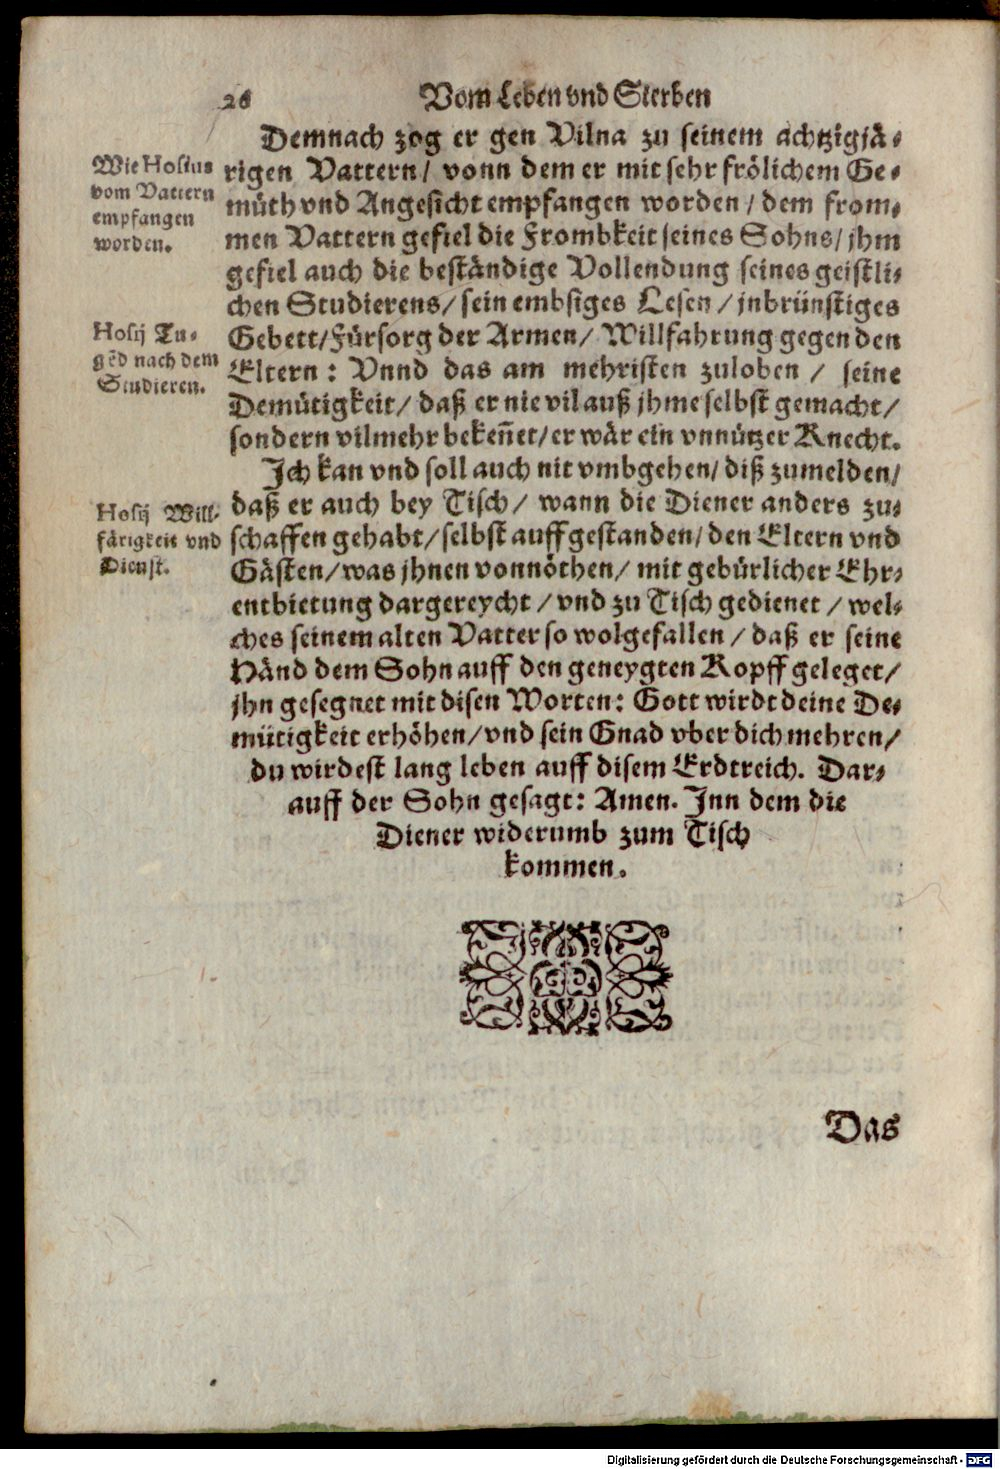 26 Vom Leben vnd Sterben
Demnach zog er gen Vilna zu seinem achtzigjä-
rigen Vattern/ vonn dem er mit sehr frölichem Ge-
müth vnd Angesicht empfangen worden/ dem from-
men Vattern gefiel die Frombkeit seines Sohns/ jhm
gefiel auch die beständige Vollendung seines geistli-
chen Studierens/ sein embsiges Lesen/ jnbrünstiges
Gebett/ Fürsorg der Armen/ Willfahrung gegen den
Eltern: Vnnd das am mehristen zuloben/ seine
Demütigkeit/ daß er nie vil auß jhme selbst gemacht/
sondern vilmehr bekeñet/ er wär ein vnnützer Knecht.
Ich kan vnd soll auch nit vmbgehen/ diß zumelden/
daß er auch bey Tisch/ wann die Diener anders zu-
schaffen gehabt/ selbst auffgestanden/ den Eltern vnd
Gästen/ was jhnen vonnöthen/ mit gebürlicher Ehr-
entbietung dargereycht/ vnd zu Tisch gedienet/ wel-
ches seinem alten Vatter so wolgefallen/ daß er seine
Händ dem Sohn auff den geneygten Kopff geleget/
jhn gesegnet mit disen Worten: Gott wirdt deine De-
mütigkeit erhöhen/ vnd sein Gnad vber dich mehren/
du wirdest lang leben auff disem Erdtreich. Dar-
auff der Sohn gesagt: Amen. Inn dem die
Diener widerumb zum Tisch
kommen.
Wie Hosius
vom Vattern
empfangen
worden.
Hosij Tu-
gẽd nach dem
Studieren.
Hosij Will-
färigkeit vnd
Dienst.
Das
Digitalisierung gefördert durch die Deutsche Forschungsgemeinschaft - DFG